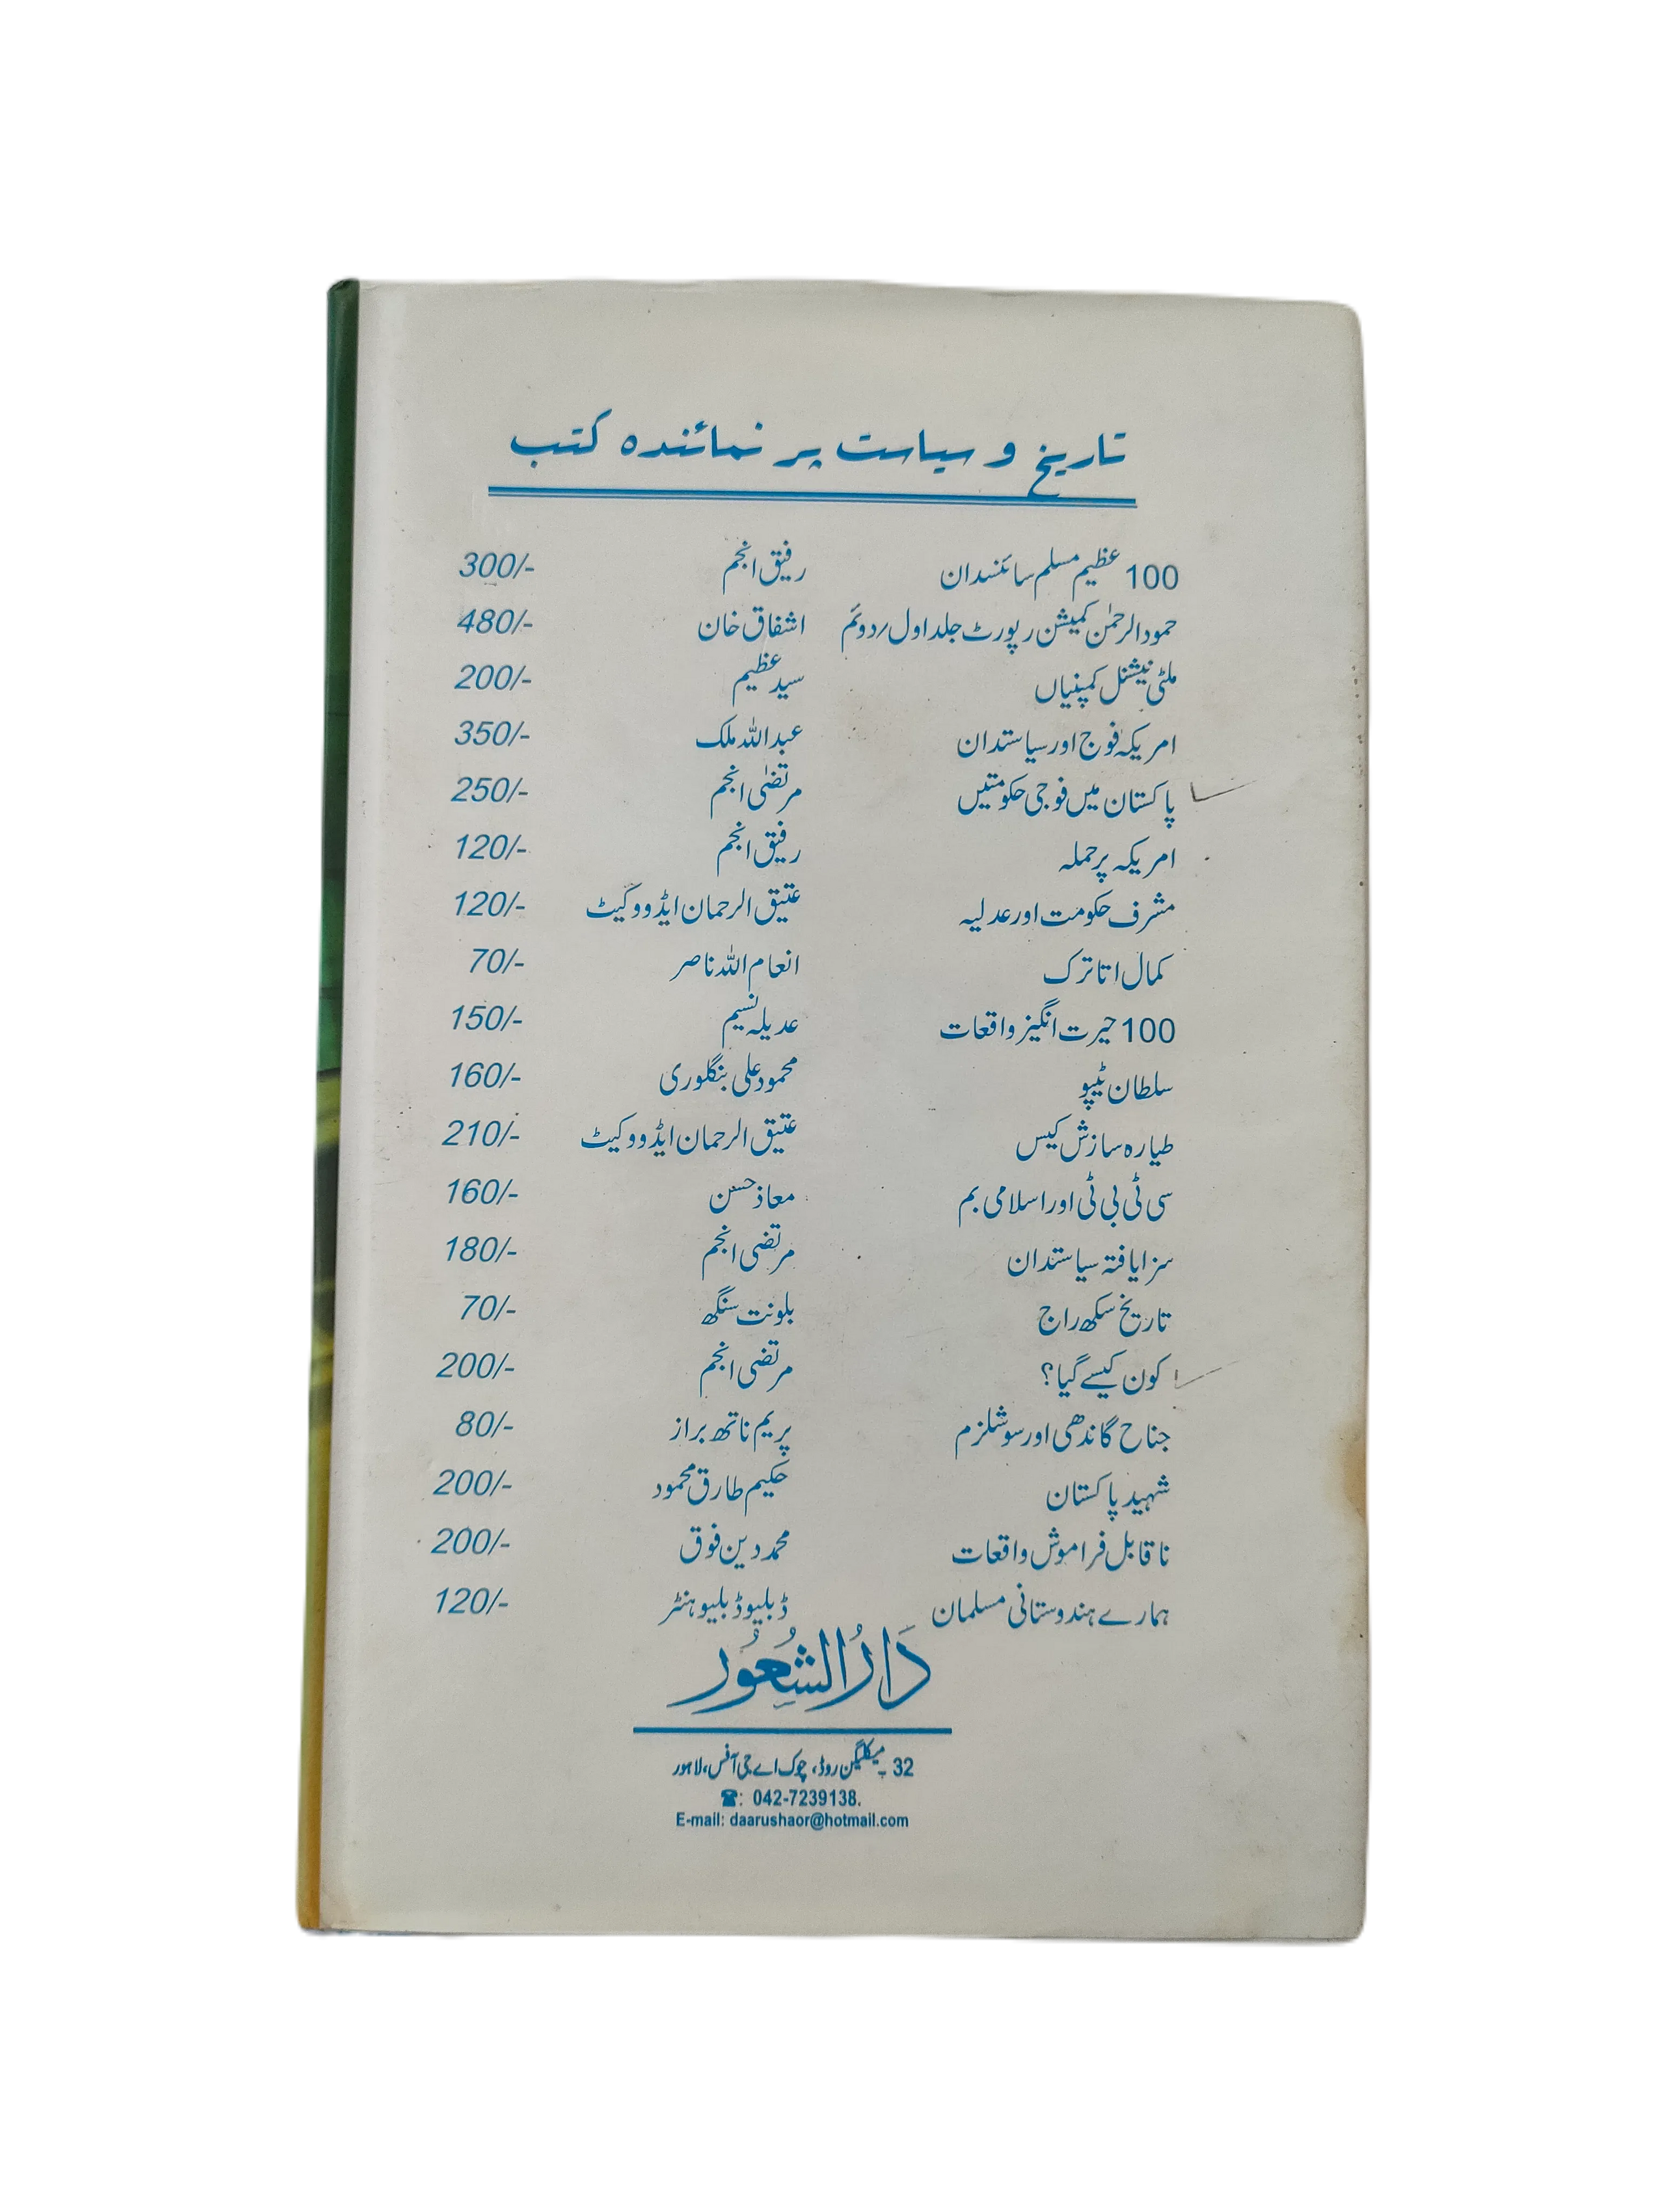 تاریخ و سیاست پر نمائندہ کتب
100 عظیم مسلم سائنسدان رفیق انجم 300/-
حمود الرحمٰن کمیشن رپورٹ جلد اول/دوئم اشفاق خان 480/-
ملٹی نیشنل کمپنیاں سید عظیم 200/-
امریکہ فوج اور سیاستدان عبداللہ ملک 350/-
پاکستان میں فوجی حکومتیں مرتضٰی انجم 250/-
امریکہ پر حملہ رفیق انجم 120/-
مشرف حکومت اور عدلیہ عتیق الرحمان ایڈووکیٹ 120/-
کمال اتاترک انعام اللہ ناصر 70/-
100 حیرت انگیز واقعات عدیلہ نسیم 150/-
سلطان ٹیپو محمود علی بنگلوری 160/-
طیارہ سازش کیس عتیق الرحمان ایڈووکیٹ 210/-
سی ٹی بی ٹی اور اسلامی بم معاذ حسن 160/-
سزا یافتہ سیاستدان مرتضی انجم 180/-
تاریخ سکھ راج بلونت سنگھ 70/-
کون کیسے گیا؟ مرتضی انجم 200/-
جناح گاندھی اور سوشلزم پریم ناتھ براز 80/-
شہید پاکستان حکیم طارق محمود 200/-
ناقابل فراموش واقعات محمد دین فوق 200/-
ہمارے ہندوستانی مسلمان ڈبلیو ڈبلیو ہنٹر 120/-
دَارُ الشُعُور
32 ۔ میکلیگن روڈ، چوک اے جی آفس، لاہور
☎: 042-7239138.
E-mail: daarushaor@hotmail.com